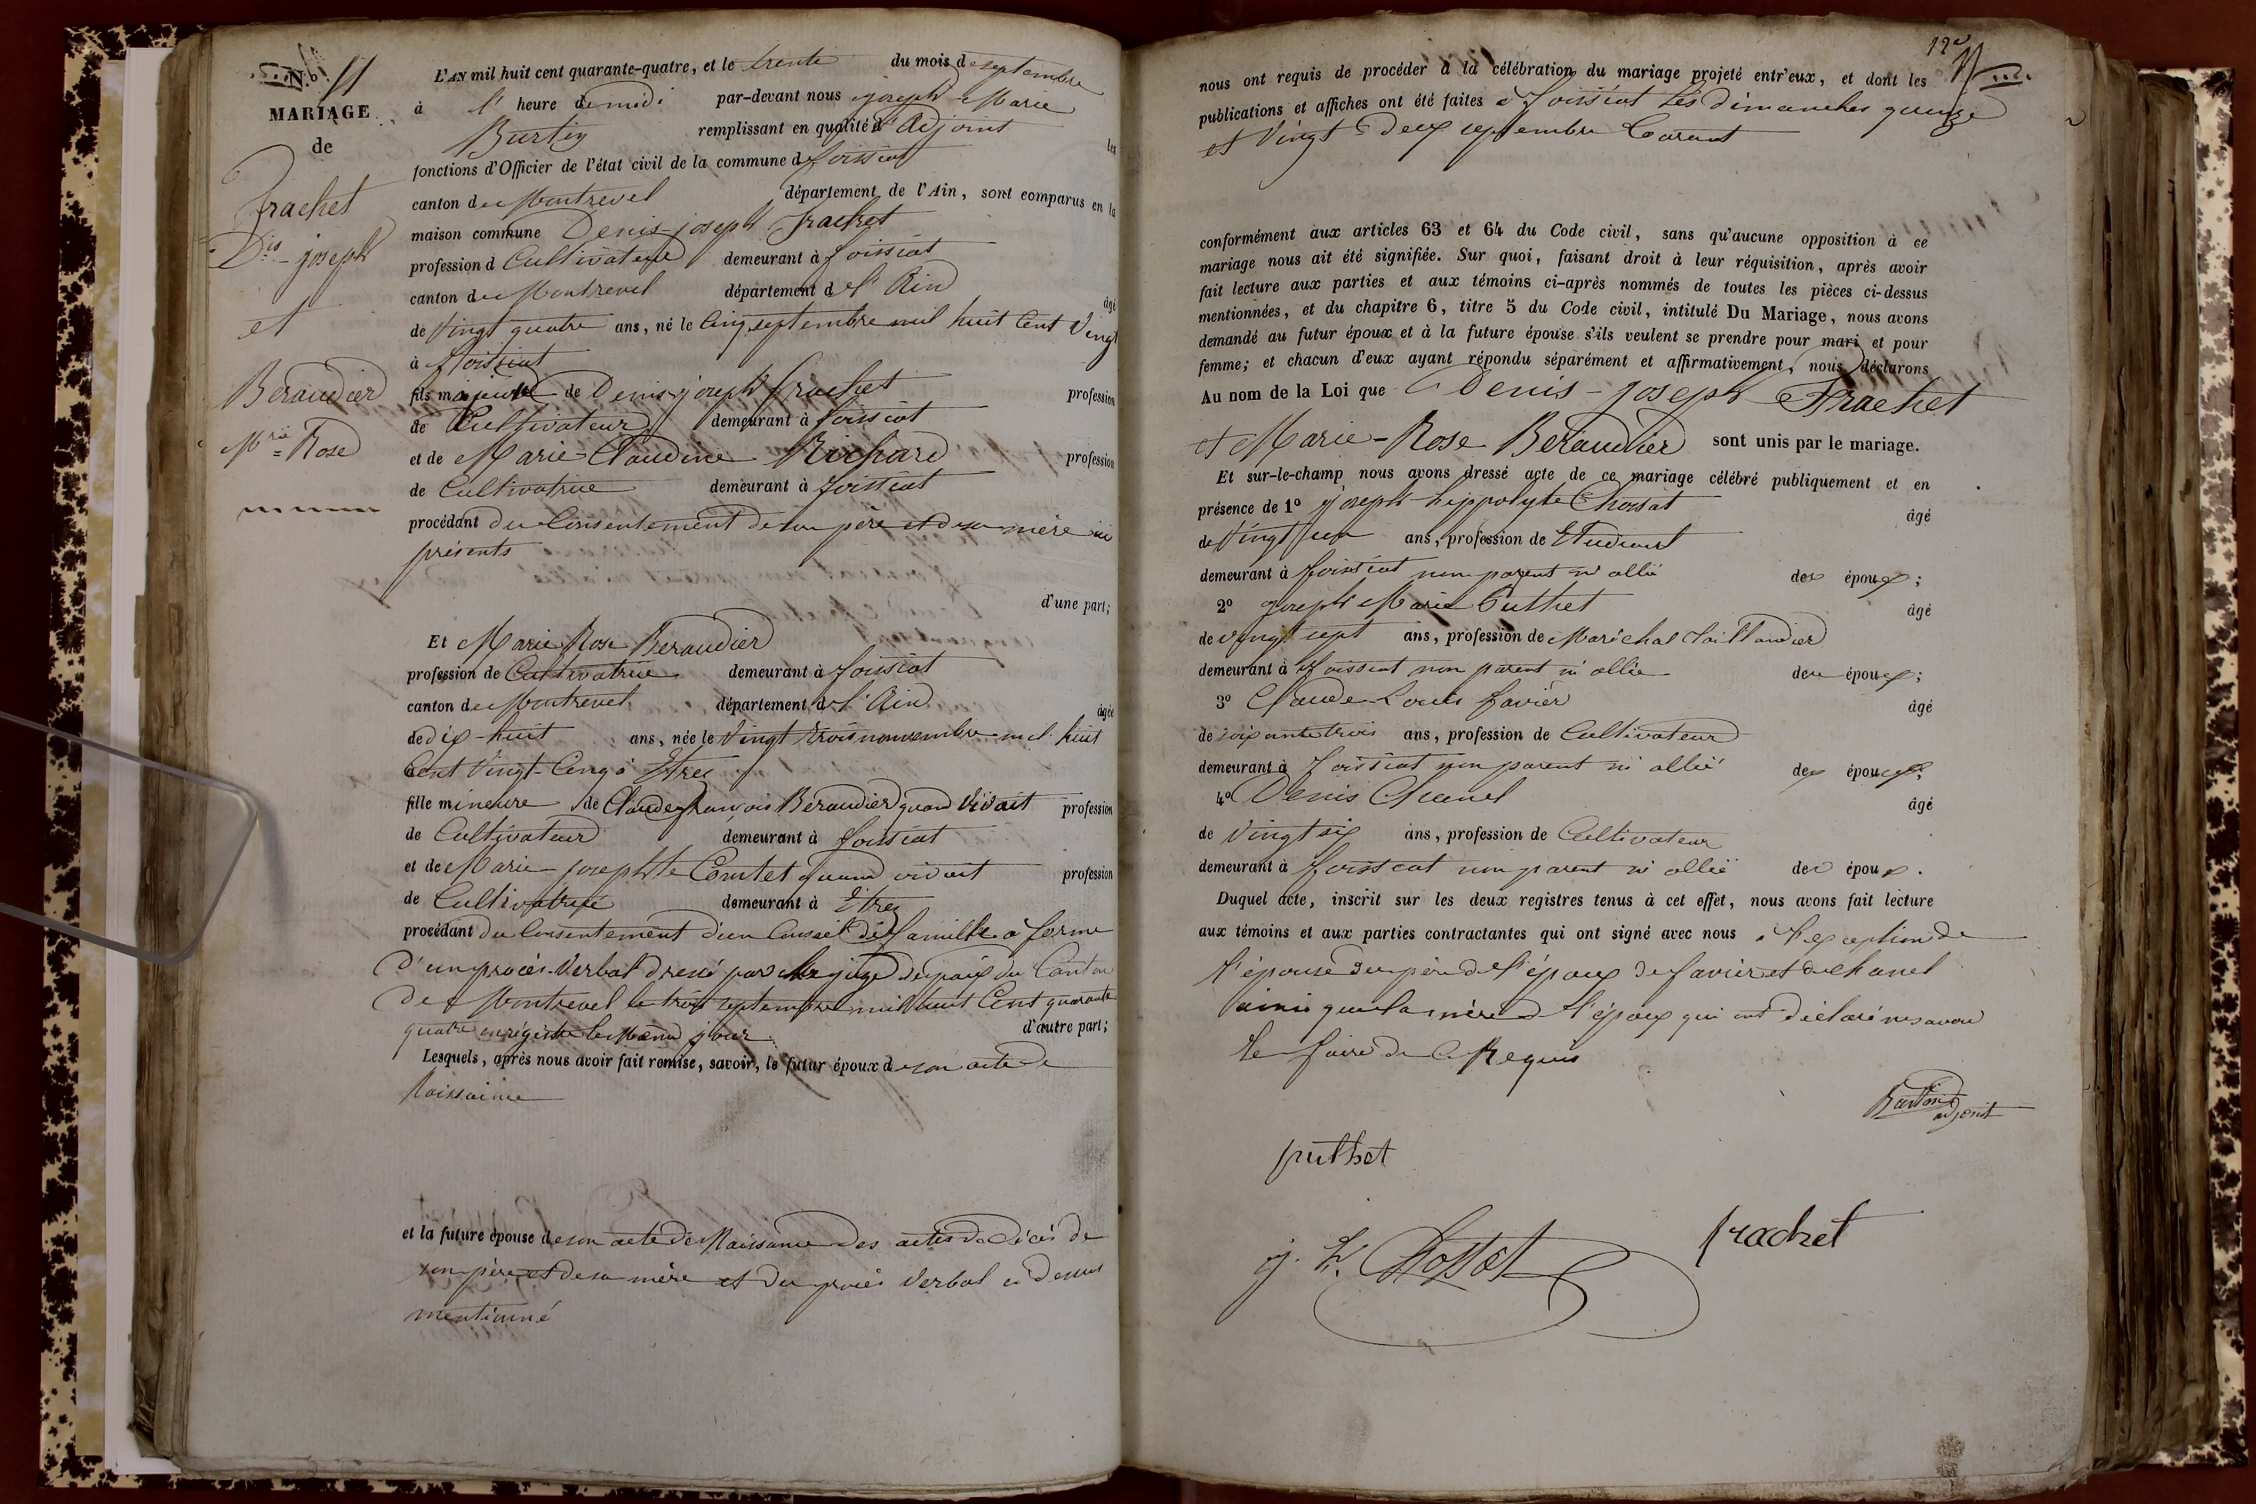 N.º 11
MARIAGE
de
Frachet
Dis - joseph
et
Beraudier
Mrie = Rose
L'AN mil huit cent quarante-quatre, et le trente du mois de septembre
à l' heure de midi par-devant nous joseph Marie
Burtin remplissant en qualité d'Adjoint les
fonctions d'Officier de l'état civil de la commune de foissiat
canton de Montrevel département de l'Ain, sont comparus en la
maison commune Denis-joseph Frachet
profession de Cultivateur demeurant à foissiat
canton de Montrevel département de l'Ain âgé
de Vingt quatre ans, né le Cinq septembre mil huit Cent Vingt
à foissiat
fils majeur de Denis-joseph frachet profession
de Cultivateur demeurant à foissiat
et de Marie-Claudine Richard profession
de Cultivatrice demeurant à foissiat
procédant du Consentement de son père et de sa mère ici
présents
d'une part;
Et Marie Rose Beraudier
profession de Cultivatrice demeurant à foissiat
canton de Montrevel département de l'Ain âgée
de dix-huit ans, née le Vingt trois novembre mil huit
Cent Vingt-Cinq à Etrez
fille mineure de Claude françois Béraudier quand vivait profession
de Cultivateur demeurant à foissiat
et de Marie josephte Comtet quand vivait profession
de Cultivatrice demeurant à Etrez
procédant du Consentement d'un Conseil de famille a forme
D'un procès-Verbal dressé par le juge de paix du Canton
de Montrevel le trois septembre mil huit Cent quarante
quatre enrégistré le Même jour d'autre part;
Lesquels, après nous avoir fait remise, savoir, le futur époux de son acte de
Naissaince
et la future épouse de son acte de Naissance des actes de Décès de
son père et de sa mère et du procès Verbal ci dessus
mentionné
nous ont requis de procéder à la célébration du mariage projeté entr'eux, et dont les
publications et affiches ont été faites à foissiat les dimanches quinze
et Vingt Deux septembre Courant
conformément aux articles 63 et 64 du Code civil, sans qu'aucune opposition à ce
mariage nous ait été signifiée. Sur quoi, faisant droit à leur réquisition, après avoir
fait lecture aux parties et aux témoins ci-après nommés de toutes les pièces ci-dessus
mentionnées, et du chapitre 6, titre 5 du Code civil, intitulé Du Mariage, nous avons
demandé au futur époux et à la future épouse s'ils veulent se prendre pour mari et pour
femme; et chacun d'eux ayant répondu séparément et affirmativement, nous déclarons
Au nom de la Loi que Denis-joseph Frachet
et Marie-Rose Beraudier sont unis par le mariage.
Et sur-le-champ nous avons dressé acte de ce mariage célébré publiquement et en
présence de 1º joseph-hippolyte Chossat âgé
de Vingt un ans, profession de Etudiant
demeurant à foissiat non parent ni allié des époux;
2º joseph Marie Puthet âgé
de vingt sept ans, profession de Maréchal taillandier
demeurant à foissiat non parent ni allié des époux;
3º Claude Louis favier âgé
de soixante trois ans, profession de Cultivateur
demeurant à foissiat non parent ni allié des époux;
4º Denis Chanel âgé
de Vingt six ans, profession de Cultivateur
demeurant à foissiat non parent ni allié des époux.
Duquel acte, inscrit sur les deux registres tenus à cet effet, nous avons fait lecture
aux témoins et aux parties contractantes qui ont signé avec nous à l'exception de
l'épouse du père de l'époux de favier et de Chanel
ainsi que la mère de l'époux qui ont déclaré ne savoir
le faire de ce Requis
adjoint
puthet
frachet
j. h. Chossat